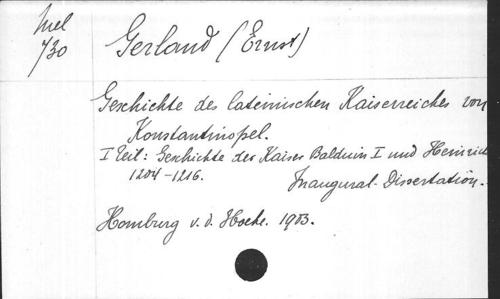 Mel
730
Gerland (Ernst)
Geschichte des lateinischen Kaiserreiches von
Konstantinopel.
I Teil: Geschichte der Kaiser Balduin I und Heinrich
1204-1216. Inaugural-Dissertation.
Homburg v. d. Hoehe. 1903.